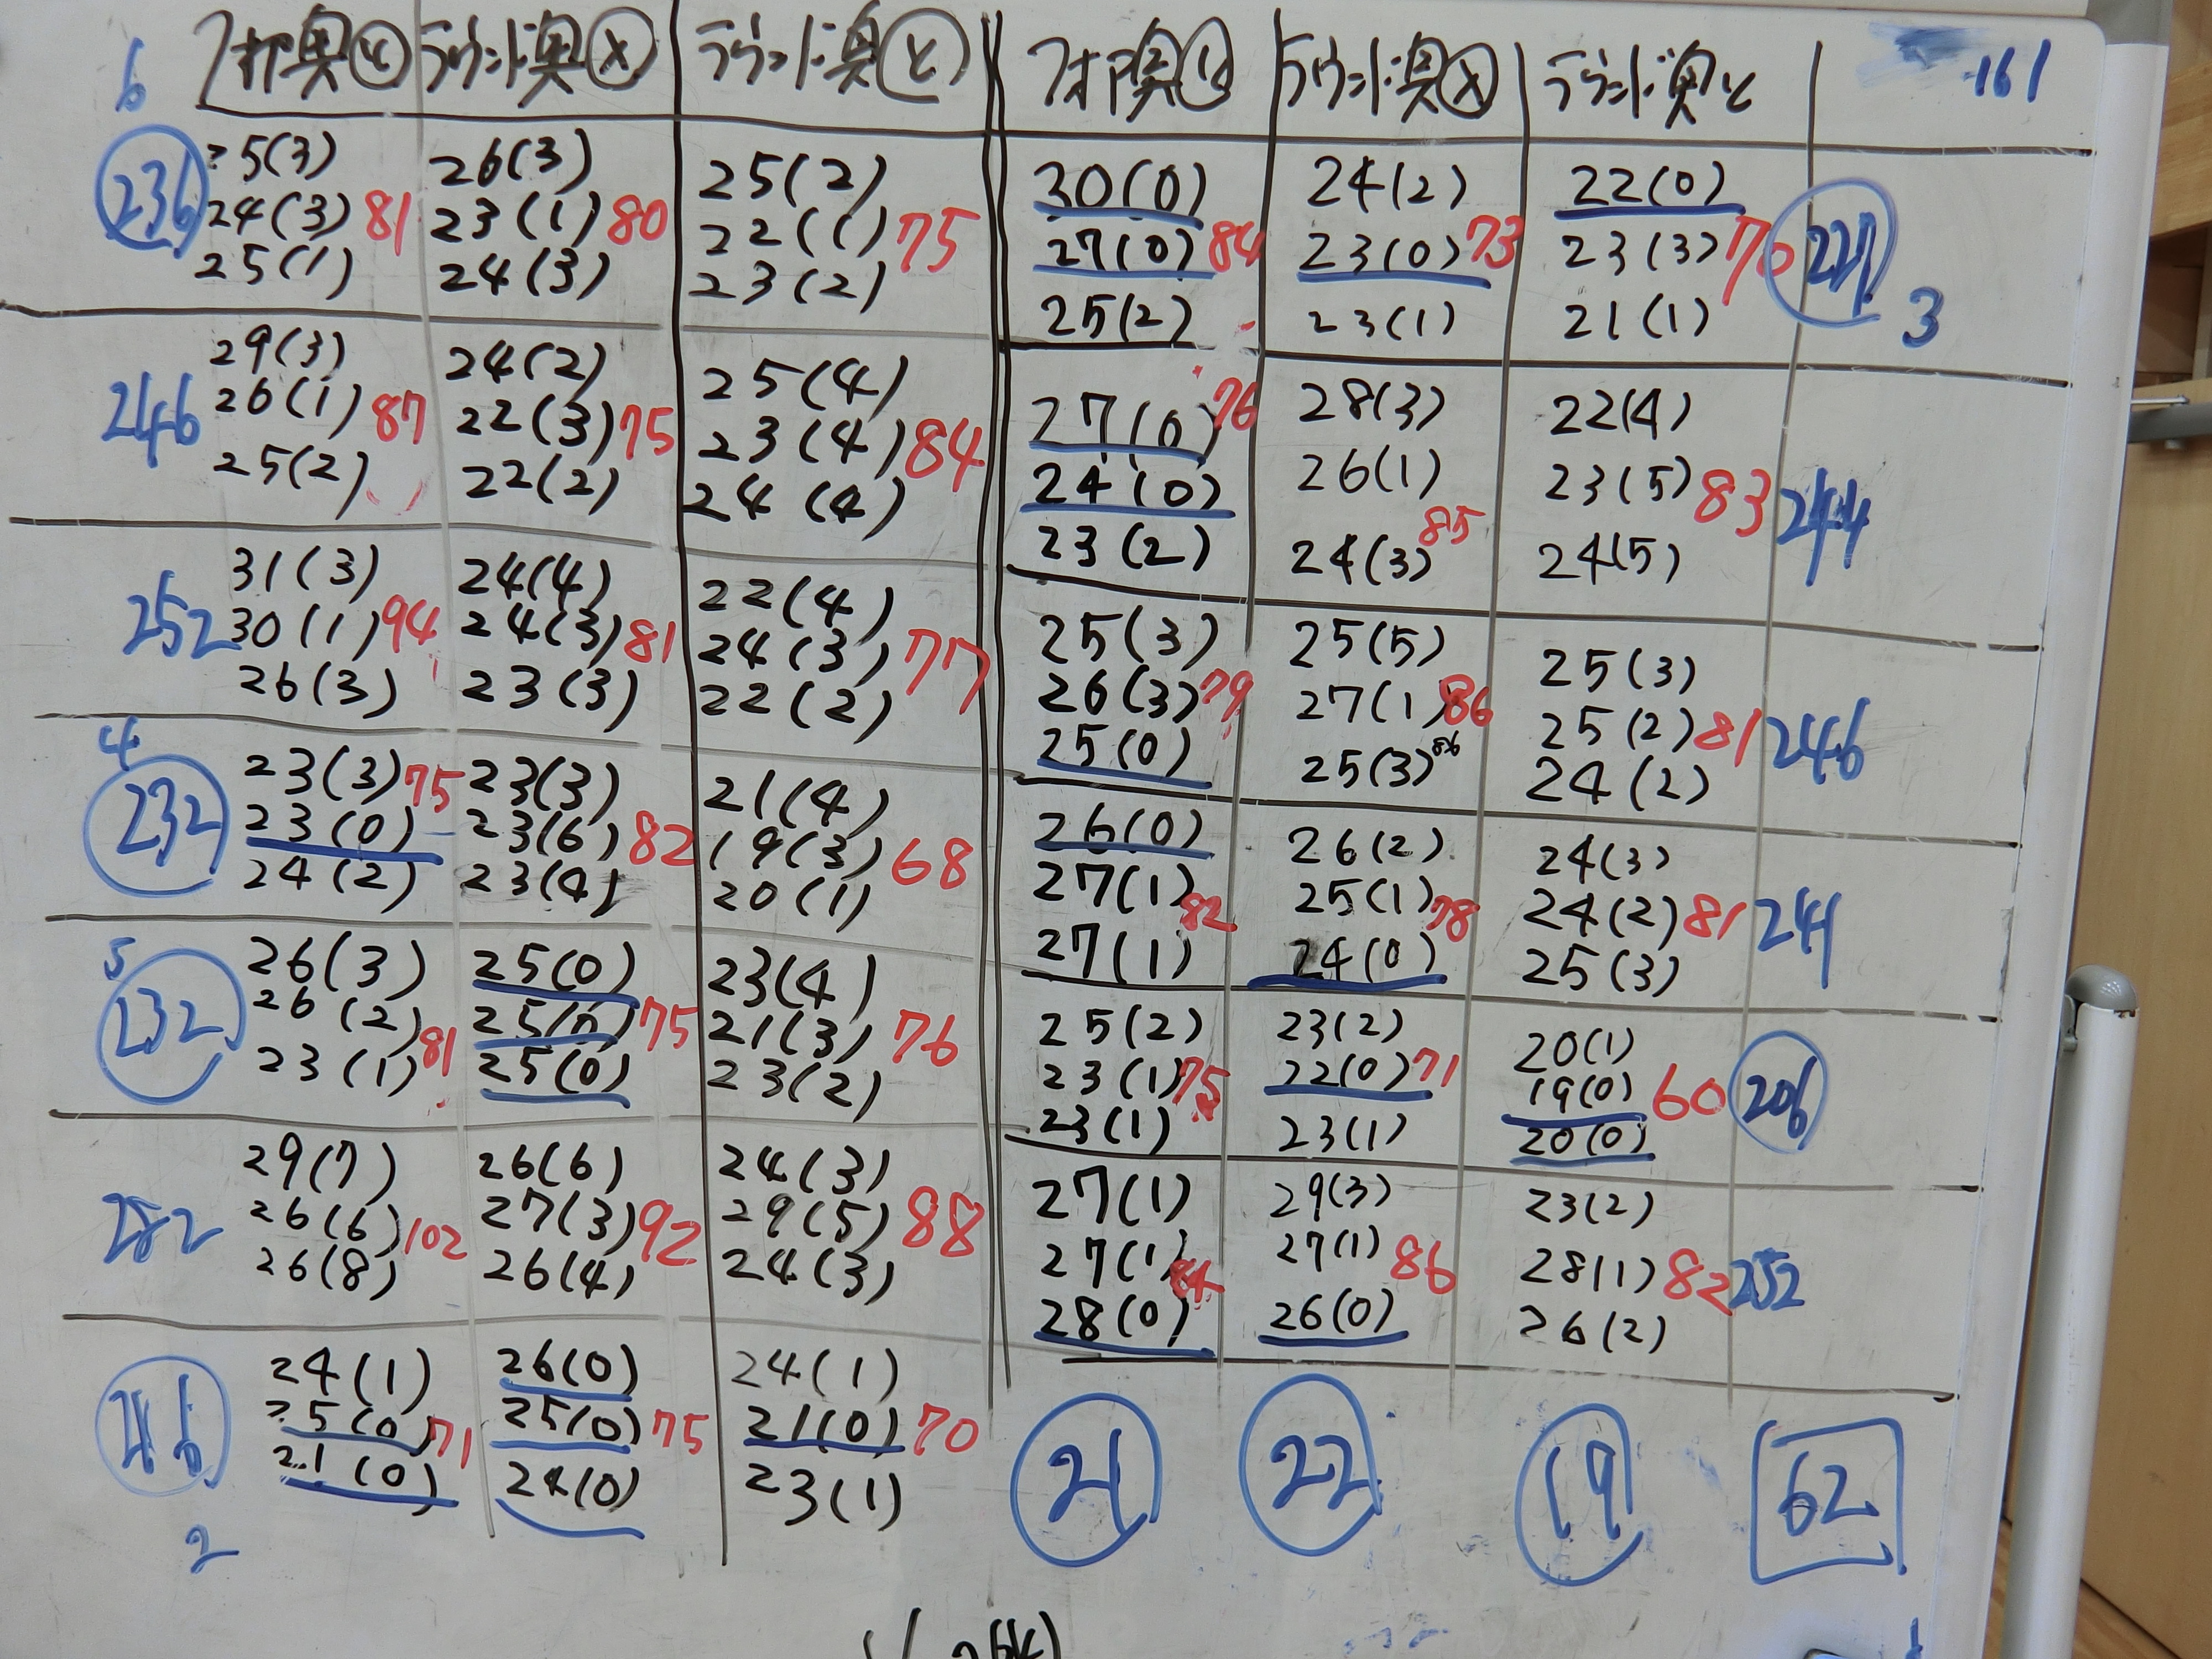 6 フォア奥ヒ ラウンド奥メ ラウンド奥ヒ フォア奥ヒ ラウンド奥メ ラウンド奥ヒ 161
25(3) 26(3) 25(2) 30(0) 24(2) 22(0)
236 24(3) 81 23(1) 80 22(1) 75 27(0) 84 23(0) 73 23(3) 70 227
25(1) 24(3) 23(2) 25(2) 23(1) 21(1) 3
29(3) 24(2) 25(4) 27(0) 76 28(3) 22(4)
246 26(1) 87 22(3) 75 23(4) 84 24(0) 26(1) 23(5) 83 244
25(2) 22(2) 24(4) 23(2) 24(3) 85 24(5)
31(3) 24(4) 22(4) 25(3) 25(5) 25(3)
252 30(1) 94 24(3) 81 24(3) 77 26(3) 79 27(1) 86 25(2) 81 246
26(3) 23(3) 22(2) 25(0) 25(3) 86 24(2)
4
23(3) 75 23(3) 21(4) 26(0) 26(2) 24(3)
232 23(0) 23(6) 82 19(3) 68 27(1) 82 25(1) 78 24(2) 81 241
24(2) 23(4) 20(1) 27(1) 24(0) 25(3)
5
26(3) 25(0) 23(4) 25(2) 23(2) 20(1)
232 26(2) 25(0) 75 21(3) 76 23(1) 75 22(0) 71 19(0) 60 206
23(1) 81 25(0) 23(2) 23(1) 23(1) 20(0)
29(7) 26(6) 24(3) 27(1) 29(3) 23(2)
282 26(6) 102 27(3) 92 29(5) 88 27(1) 84 27(1) 86 28(1) 82 252
26(8) 26(4) 24(3) 28(0) 26(0) 26(2)
24(1) 26(0) 24(1)
216 25(0) 71 25(0) 75 21(0) 70
21(0) 24(0) 23(1)
2
21 22 19 62